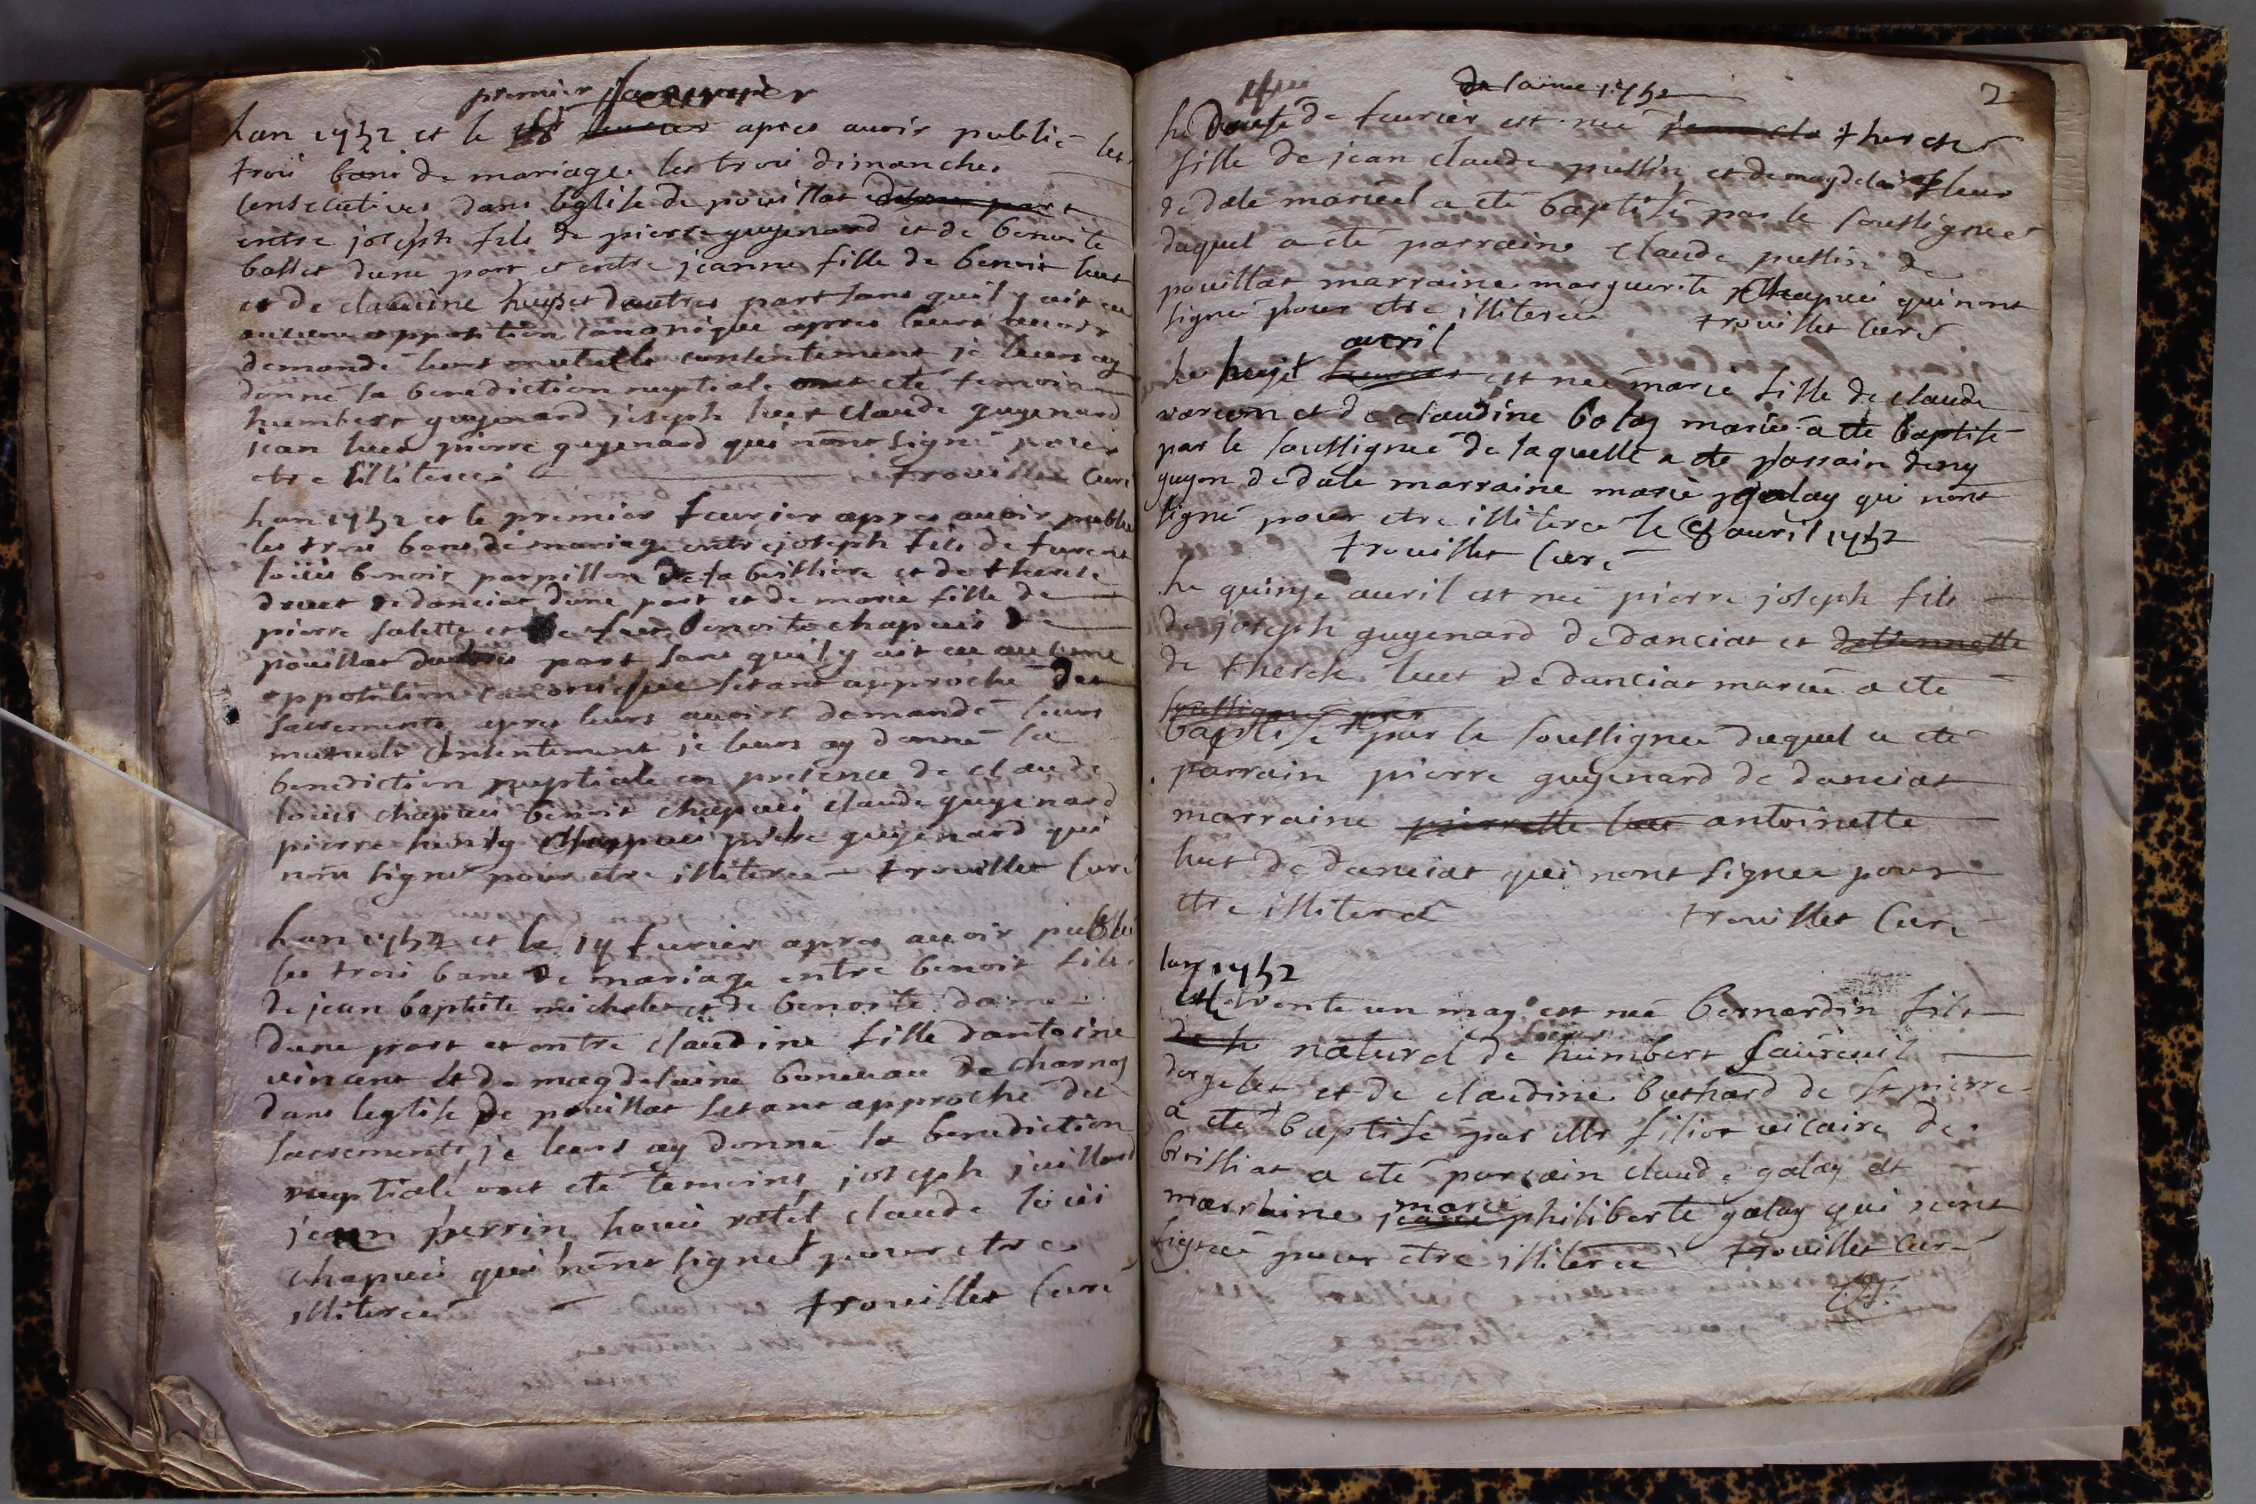 premier feuvrier
lan 1752 et le apres auoir publié les
trois bans de mariage les trois dimanches
consecutives dans leglise de pouillat
entre joseph fils de pierre guyenard et de benoite
dune part et entre jeanne fille de benoit huet
et de claudine dautres part sans quil y ait eu
aucune opposition canonique apres leurs auoir
demandé leurs mutuelle consentement je leurs ay
donné la benediction nuptiale ont eté temoins
humbert guyenard joseph huet claude guyenard
jean huet pierre guyenard qui nont signé pour
etre illiterés trouillet curé
lan 1752 et le premier feurier apres auoir publié
les trois bans de mariage entre joseph fils de
louis benoit parpillon de la et de therese
druet de danciat dune part et de marie fille de
pierre salette et de benoite chapuis de
pouillat dautres part sans quil y ait eu aucune
opposition canonique setant approché des
sacrements apres leurs auoirs demandé leurs
mutuels consentement je leurs ay donné la
benediction nuptiale en presence de claude
louis chapuis benoit chapuis claude guyenard
pierre chappuis guyenard qui
nont signé pour etre illiteree trouillet curé
lan 1752 et le 14 feurier apres auoir publié
les trois bans de mariage entre benoit fils
de jean baptiste michelet et de benoite dame
dune part et entre claudine fille dantoine
vincent et de magdelaine de charnos
dans leglise de pouillat setant approché des
sacrements je leurs ay donné la benediction
nuptiale ont eté temoins joseph juillard
jean perrin ratel claude louis
chapuis qui nont signé pour etre
illiterée trouillet curé
de lannee 1752 2
le douse de feurier est née therese
fille de jean claude pussin et de magdelaine
de dale mariéel a eté baptisé par le soussignée
duquel a eté parraine claude pussin de
pouillat marraine marguerite chapuis qui nont
signé pour etre illiterée trouillet curé
auril
le huit feurier est neé marie fille de claude
et de claudine balay mariée a eté baptisé
par le soussignée de laquelle a eté parrain deny
guyon de dale marraine marie galay qui nont
signé pour etre illiterée le 8 auril 1752
trouillet curé
le quinse auril est né pierre joseph fils
de joseph guyenard de danciat et
de therese huet de danciat mariée a eté
baptisé par le soussignée duquel a eté
parrain pierre guyenard de danciat
marraine pierrette huet antoinette
huet de danciat qui nont signée pour
etre illiteré trouillet curé
lan 1752
et le trente un may est né bernardin fils
naturel de humbert
dorgelet et de claudine buthard de st pierre
a eté baptisé par mr filiot vicaire de
broissiat a eté parrain claude galay et
marraine marie philiberte galay qui nont
signée pour etre illiterée trouillet curé